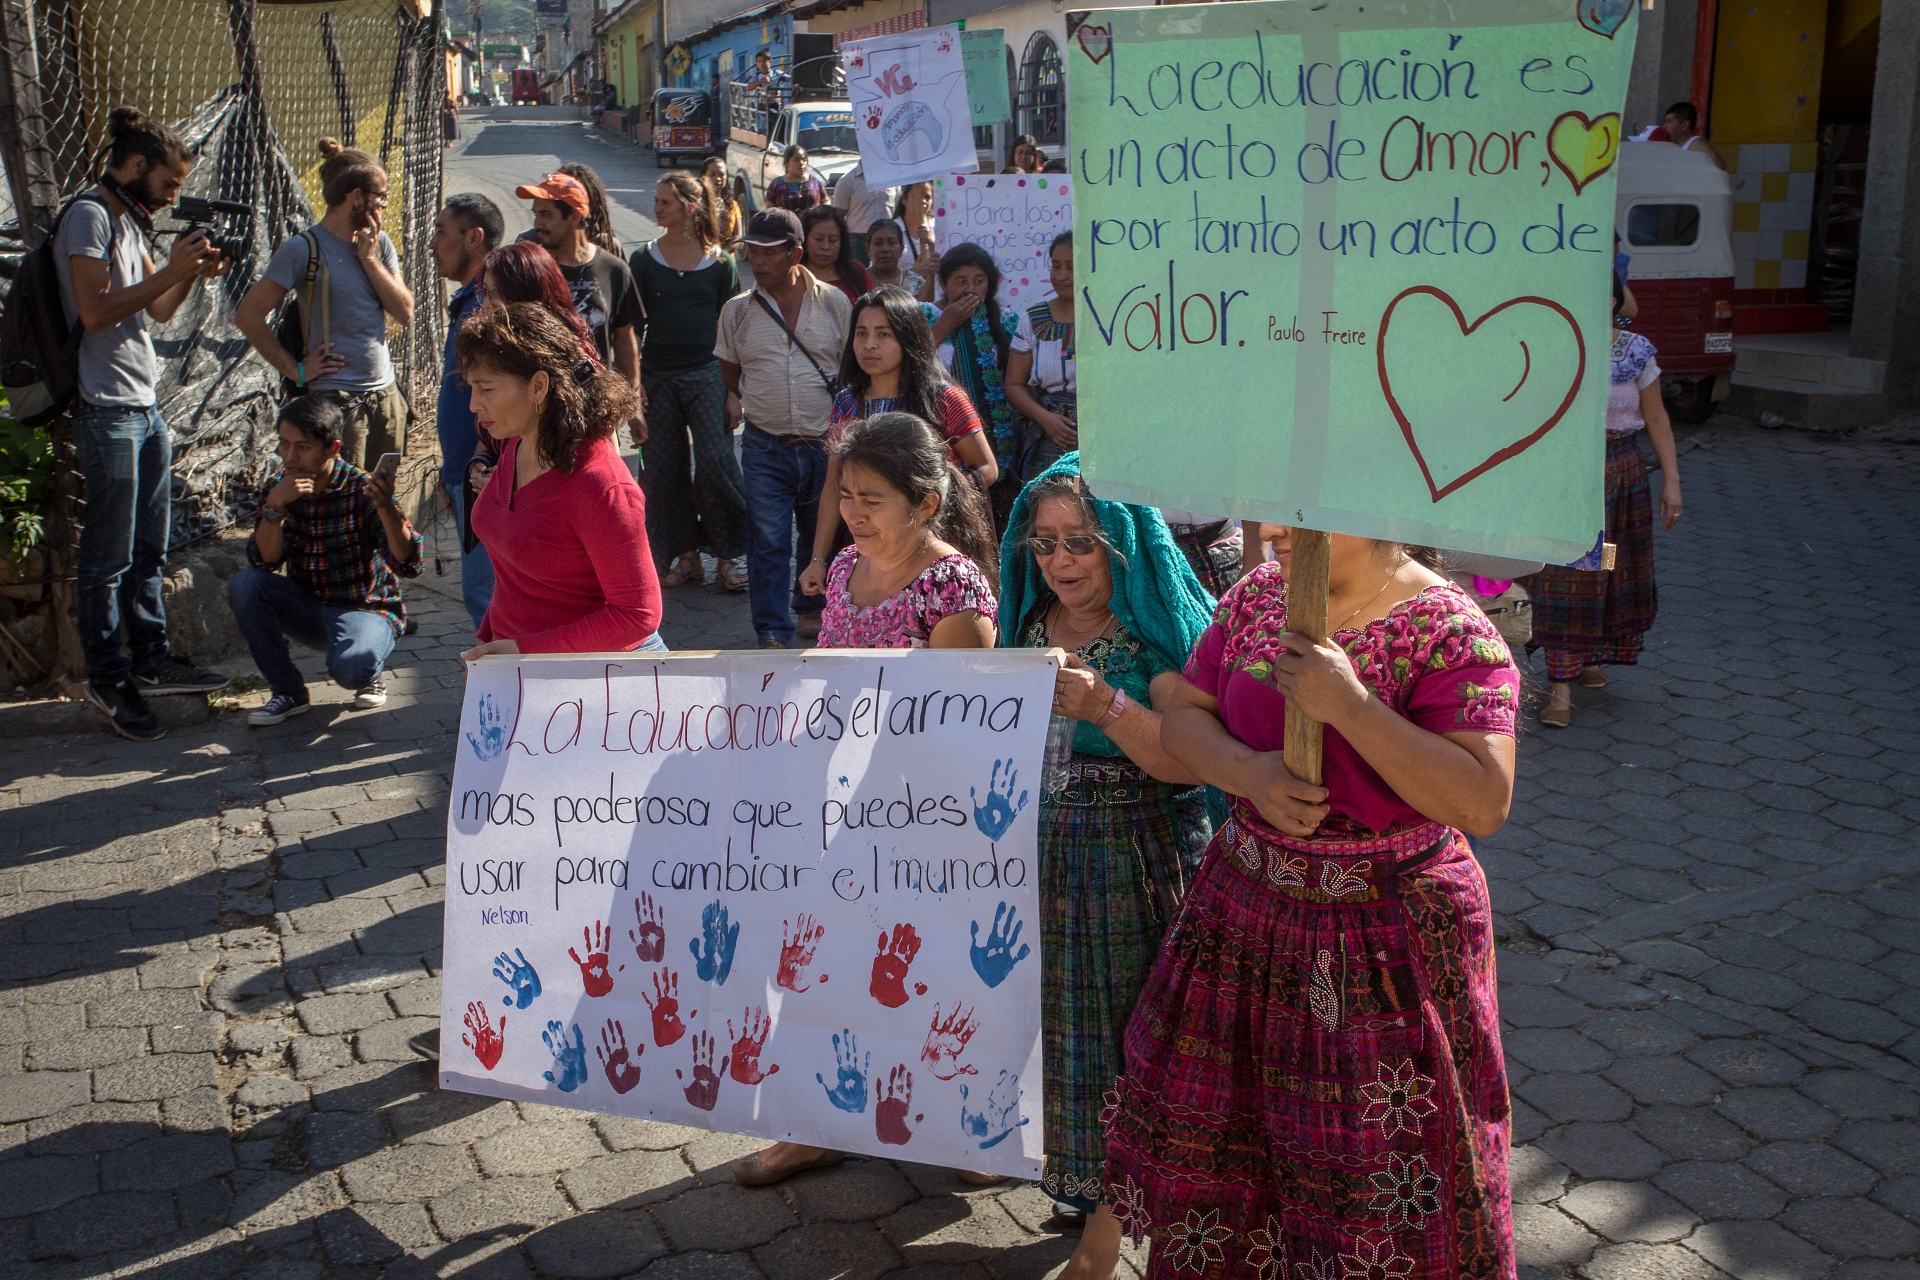 La educación es
un acto de Amor,
por tanto un acto de
valor. Paulo Freire
La Educación es el arma
mas poderosa que puedes
usar para cambiar el mundo.
Nelson.
VG.
Para los
porque
son